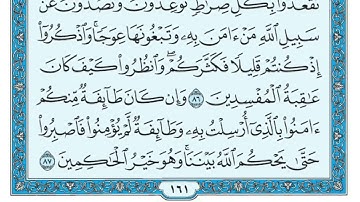 تَقْعُدُوا۟ بِكُلِّ صِرَٰطٍ تُوعِدُونَ وَتَصُدُّونَ عَن
سَبِيلِ ٱللَّهِ مَنْ ءَامَنَ بِهِۦ وَتَبْغُونَهَا عِوَجًا ۚ وَٱذْكُرُوٓا۟
إِذْ كُنتُمْ قَلِيلًا فَكَثَّرَكُمْ ۖ وَٱنظُرُوا۟ كَيْفَ كَانَ
عَٰقِبَةُ ٱلْمُفْسِدِينَ ٨٦ وَإِن كَانَ طَآئِفَةٌ مِّنكُمْ
ءَامَنُوا۟ بِٱلَّذِىٓ أُرْسِلْتُ بِهِۦ وَطَآئِفَةٌ لَّمْ يُؤْمِنُوا۟ فَٱصْبِرُوا۟
حَتَّىٰ يَحْكُمَ ٱللَّهُ بَيْنَنَا ۚ وَهُوَ خَيْرُ ٱلْحَٰكِمِينَ ٨٧
١٦١